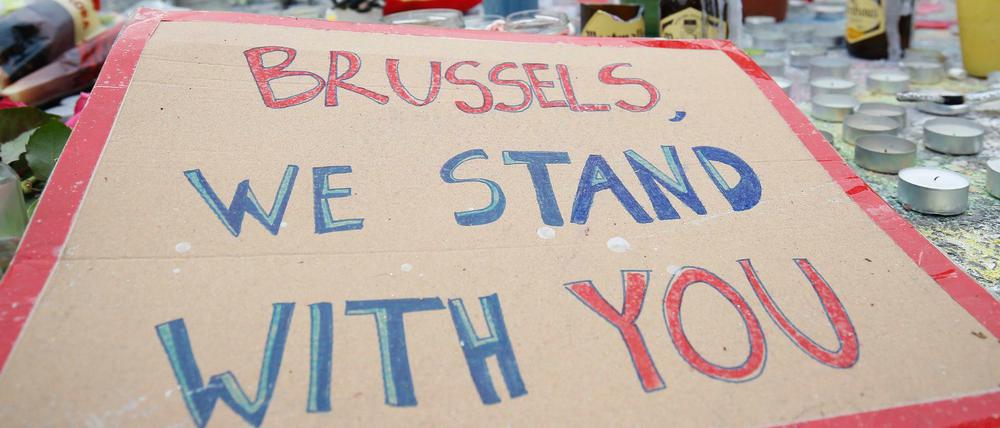 BRUSSELS,
WE STAND
WITH YOU